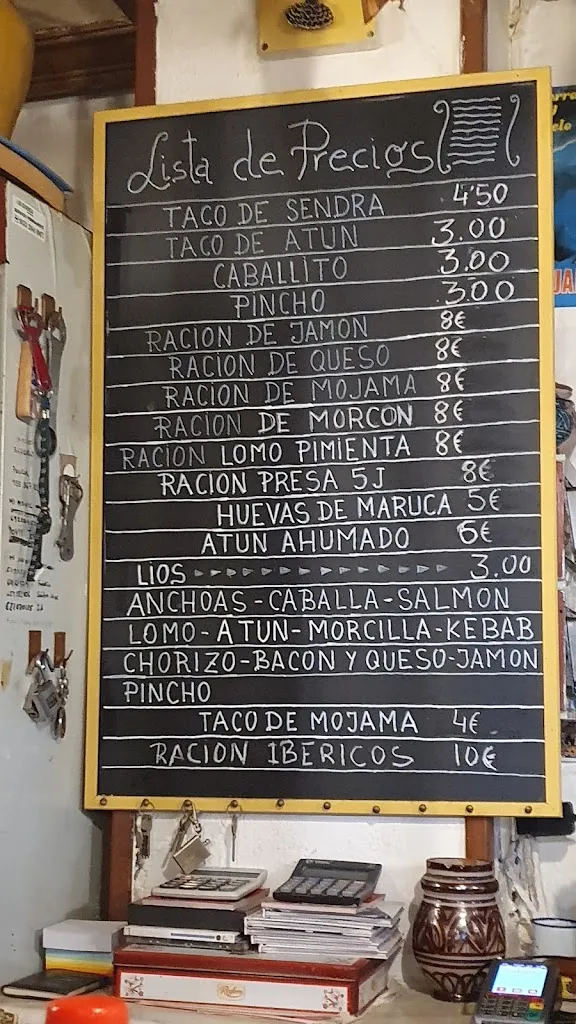 Lista de Precios
TACO DE SENDRA 4'50
TACO DE ATUN 3.00
CABALLITO 3.00
PINCHO 3.00
RACION DE JAMON 8€
RACION DE QUESO 8€
RACION DE MOJAMA 8€
RACION DE MORCON 8€
RACION LOMO PIMIENTA 8€
RACION PRESA 5J 8€
HUEVAS DE MARUCA 5€
ATUN AHUMADO 6€
LIOS 3.00
ANCHOAS-CABALLA-SALMON
LOMO-ATUN-MORCILLA-KEBAB
CHORIZO-BACON Y QUESO-JAMON
PINCHO
TACO DE MOJAMA 4€
RACION IBERICOS 10€